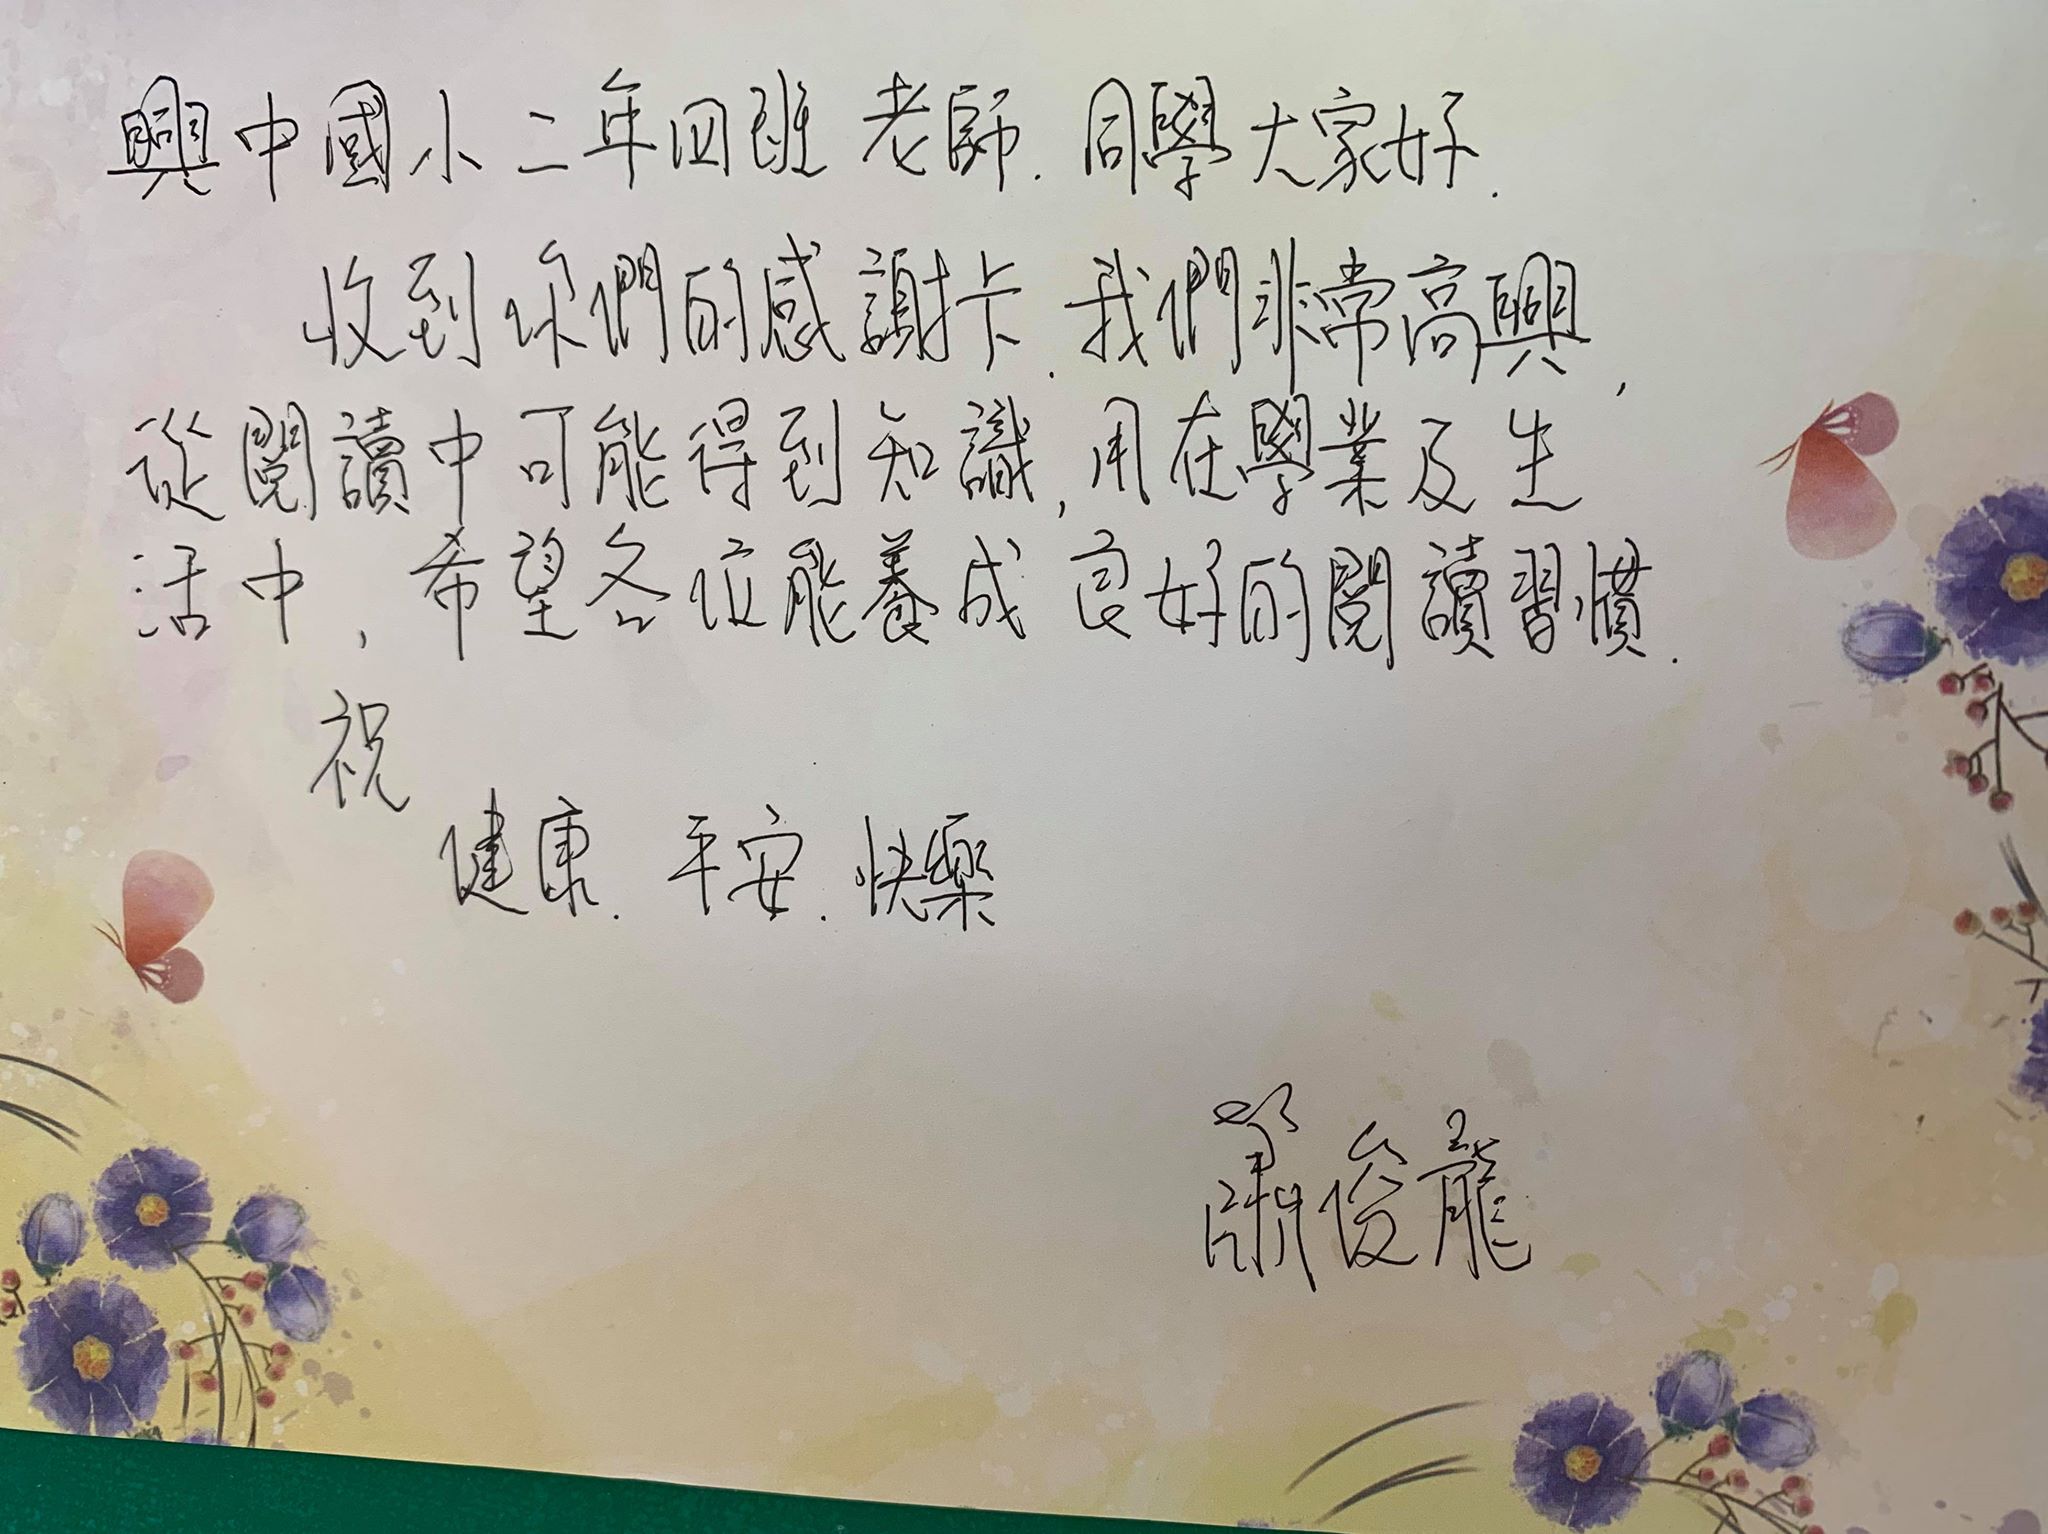 興中國小二年四班 老師.同學大家好.
收到你們的感謝卡.我們非常高興,
從閱讀中可能得到知識,用在學業及生
活中,希望各位能養成良好的閱讀習慣.
祝
健康.平安.快樂
蕭俊龍